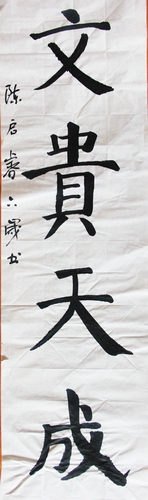 文貴天成
陈启睿六歲书